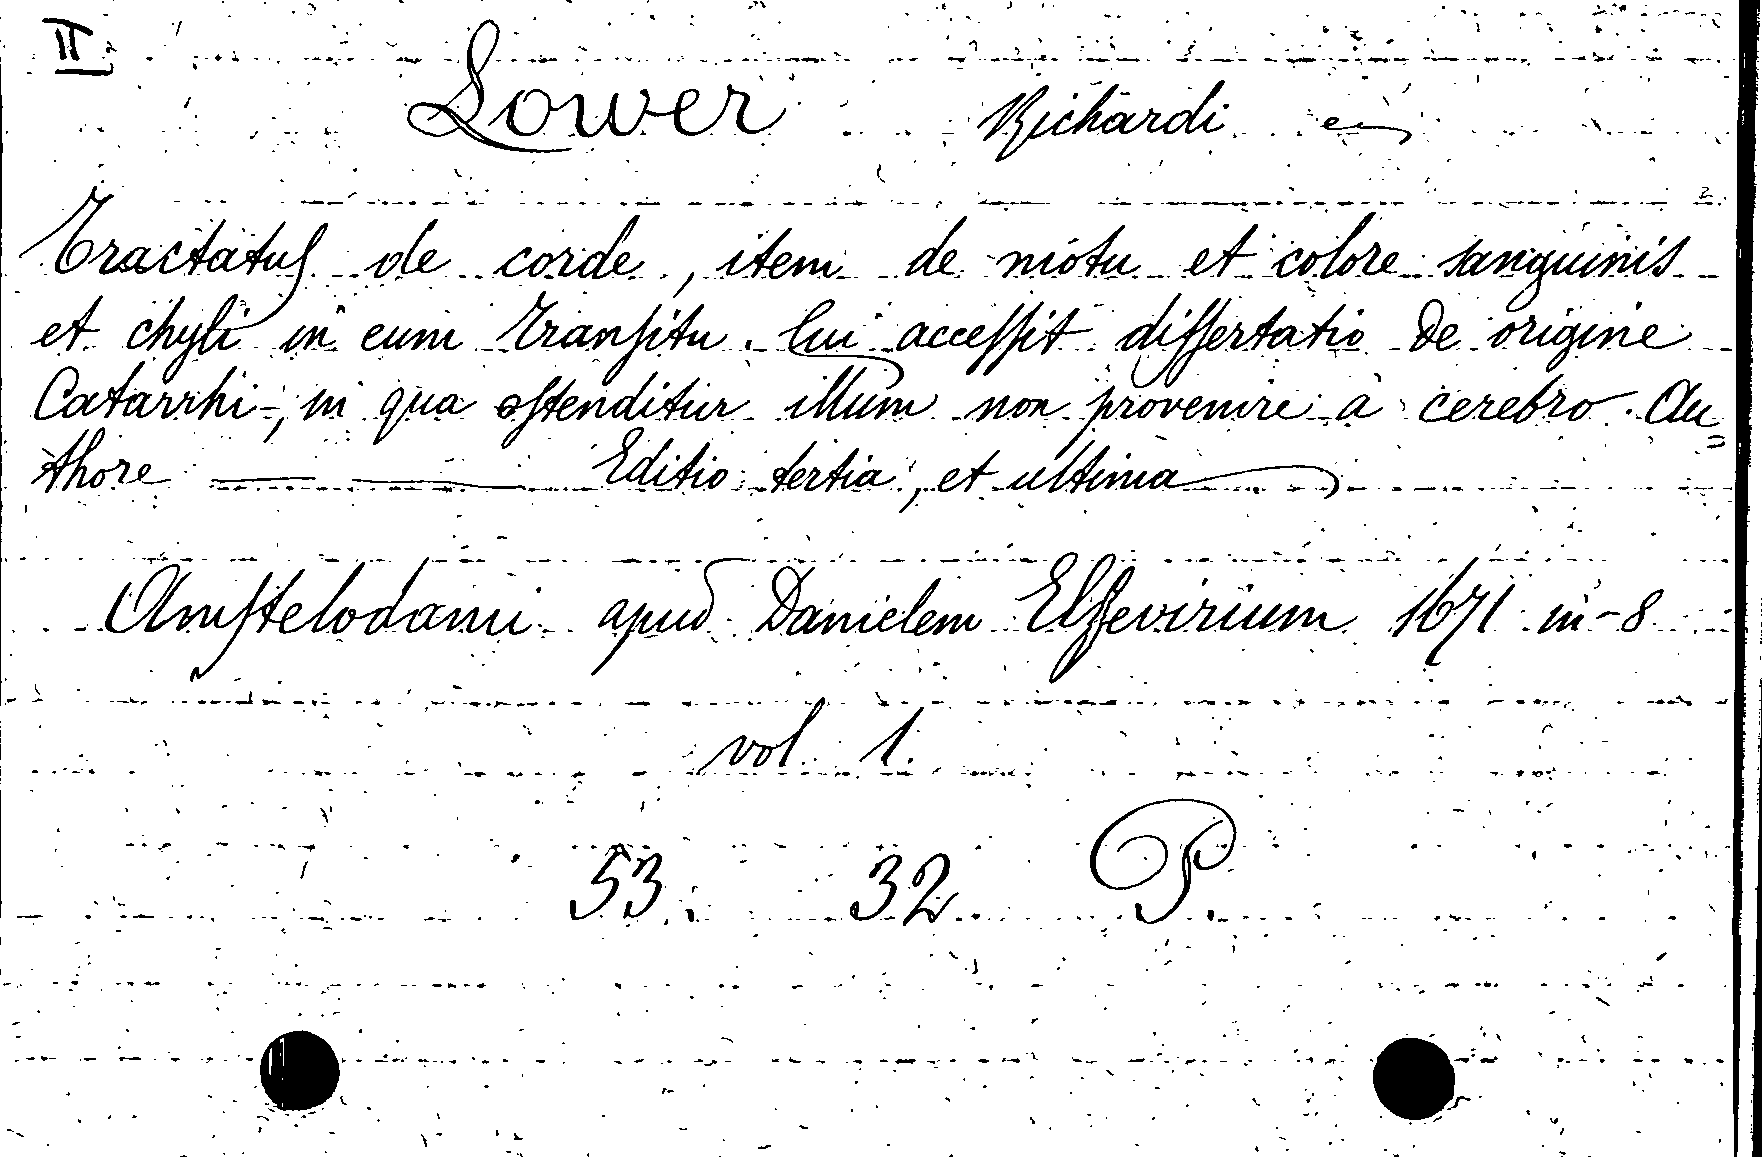 II
Lower Richardi
Tractatus de corde, item de motu et colore sanguinis
et chyli in eum transitu. Cui accessit dissertatio de origine
Catarrhi, in qua ostenditur illum non provenire à cerebro. Au=
thore Editio tertia, et ultima
Amstelodami apud Danielem Elsevirium 1671 in-8
vol. 1.
53. 32 P.